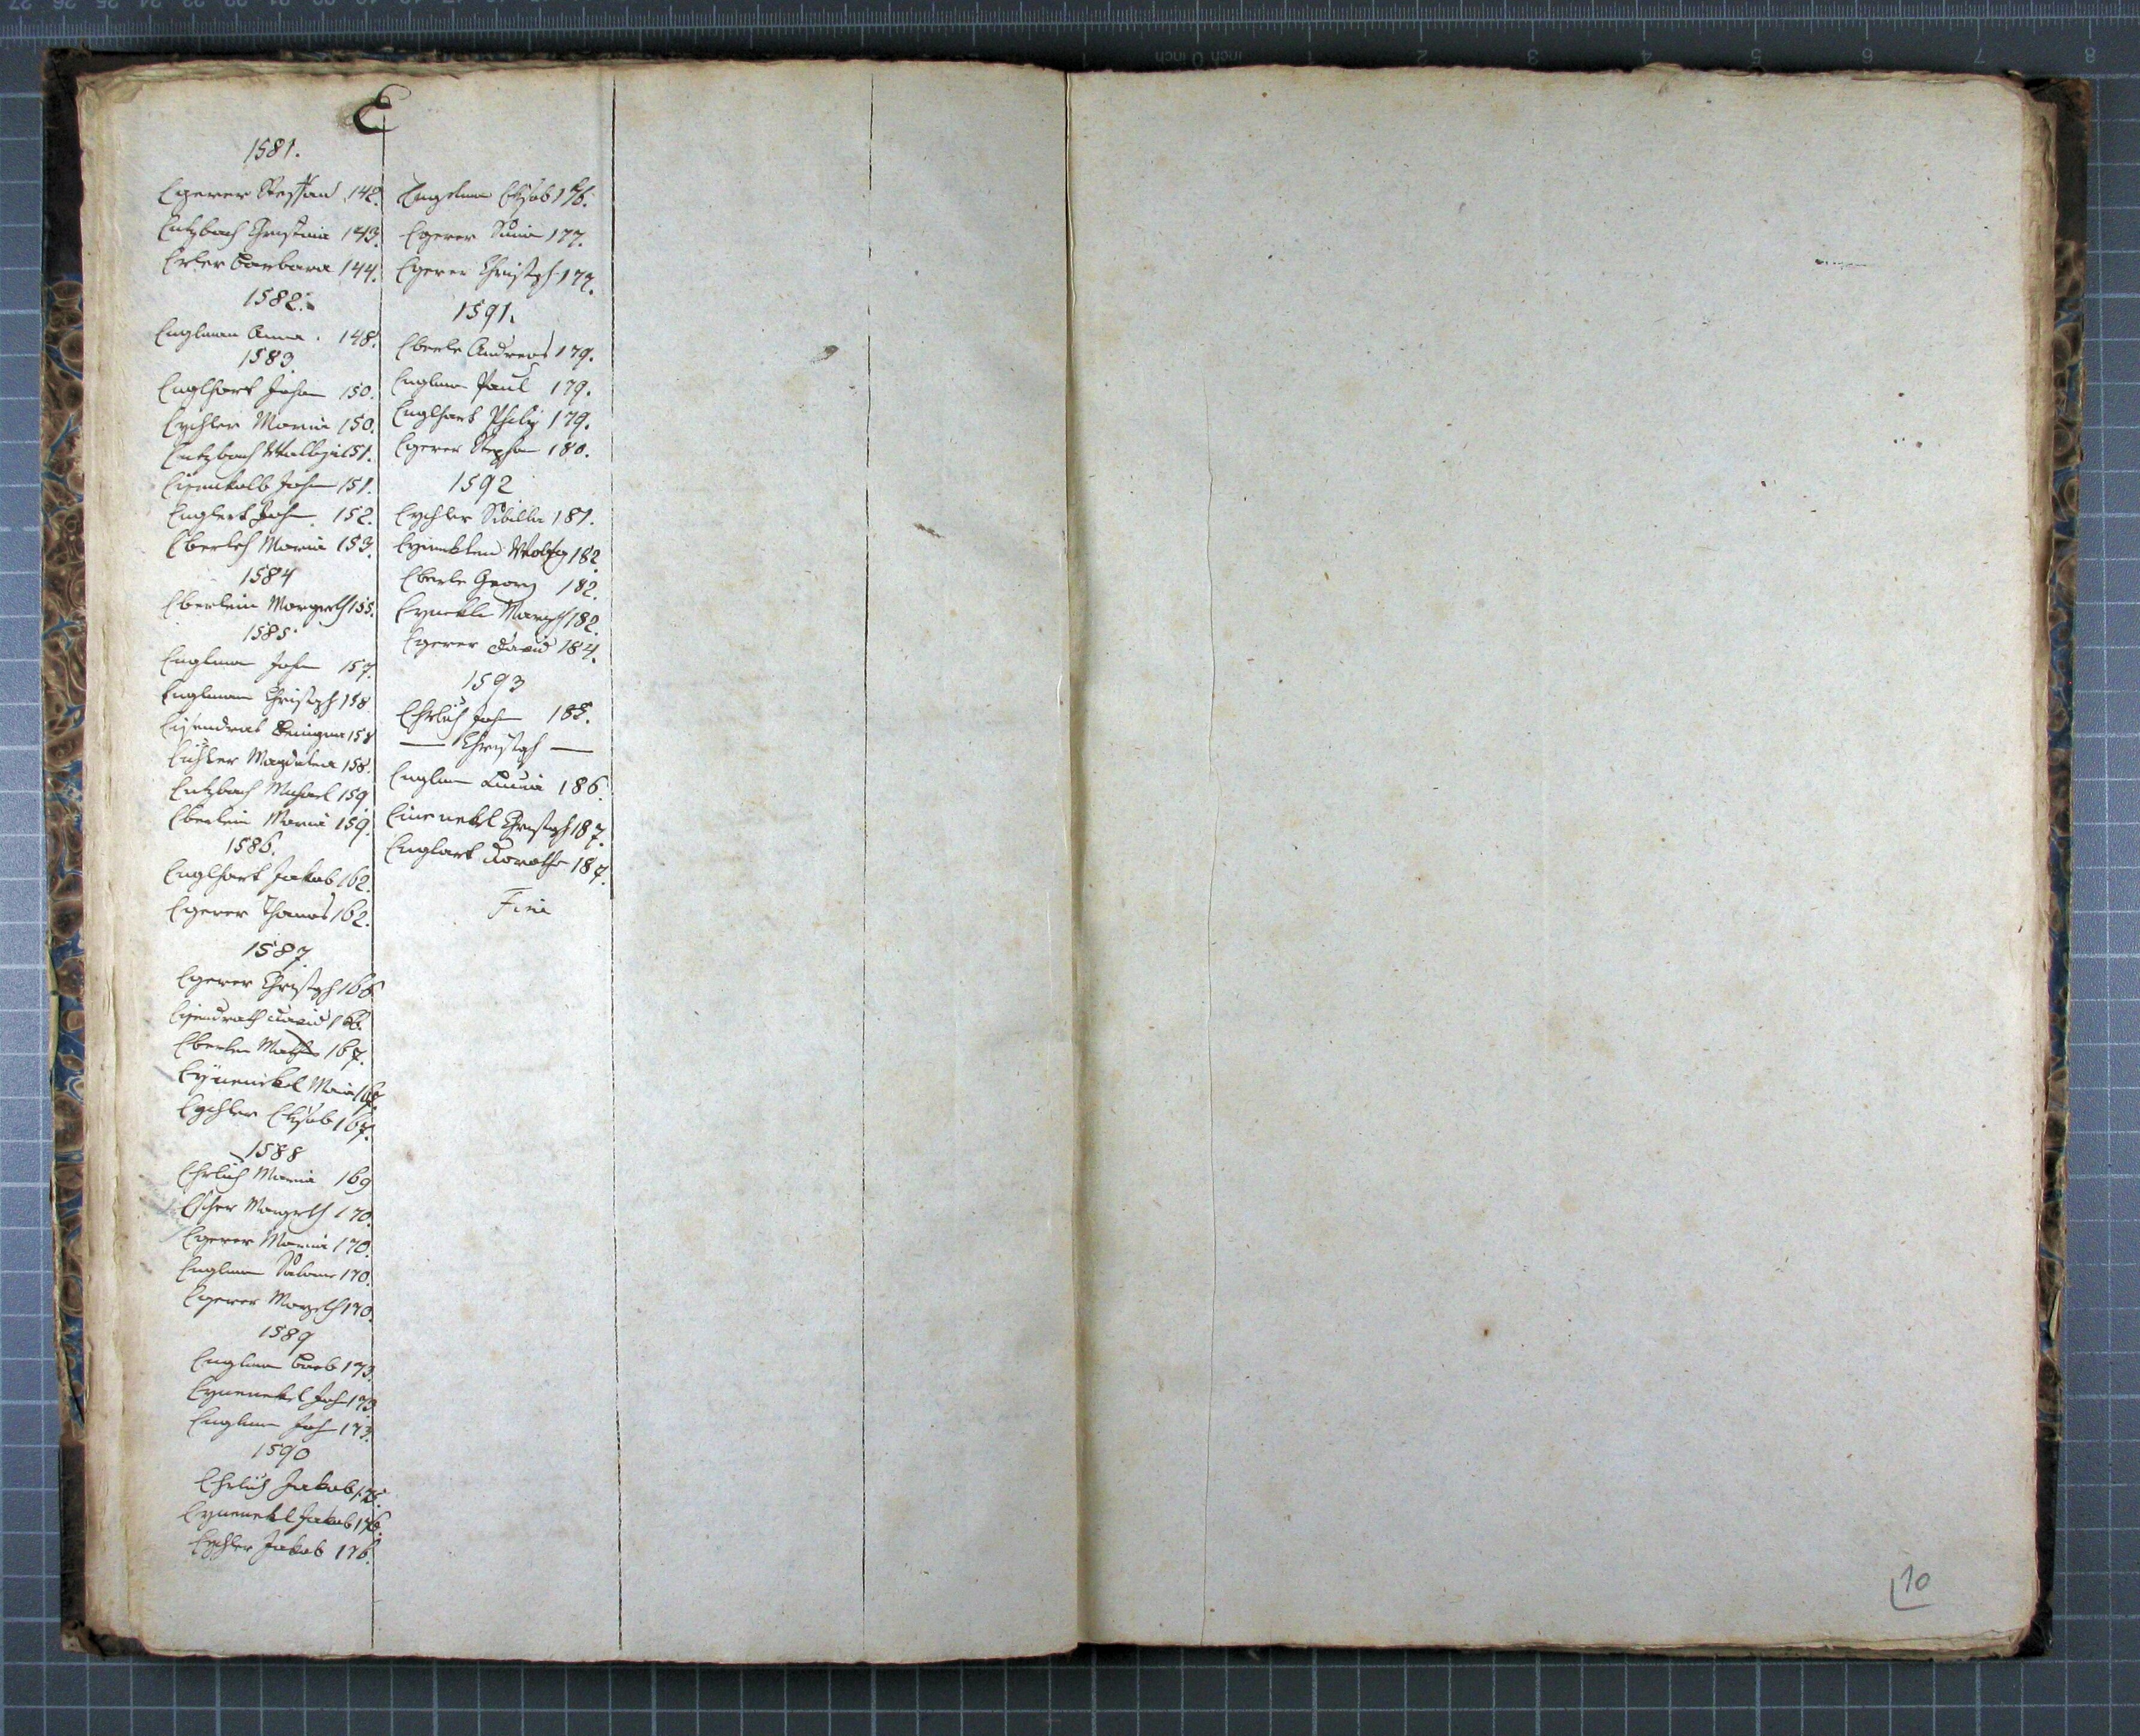 E
1581.
Egerer Steffan 142.
Entzbach Christina 143.
Erler Barbara 144.
1582.
Englman Anna. 148.
1583
Englhart Johan 150.
Eychler Maria 150.
Entzbach 151.
Eisenkolb Johan 151.
Englert Joh 152.
Eberlch Maria 153.
1584
Eberlein Margreth 155.
1585.
Englman Johan 157.
Englman Christoph 158
Eisendrat Benigna 158
Eichler Magdalena 158.
Entzbach Michael 159.
Eberlein Maria 159.
1586.
Englhart Jakob 162.
Egerer Thomas 162.
1587
Egerer Christoph 166
Eisendrath David 166.
Eberlen 167.
Eynenckel Maria 167.
Eychler Elisab 167.
1588
Ehrlich Maria 169
Escher Margreth 170.
Egerer Maria 170.
Englman Salome 170.
Egerer Margeth 170.
1589
Englman Barb 173.
Eynenckel Joh 173
Englman Joh 173.
1590
Ehrlich Jakob 175.
Eynenckel Jakob 176.
Eychler Jakob 176.
Englman Elisab 176.
Egerer 177.
Egerer Christoph 177.
1591.
Eberle Andreas 179.
Englman Paul 179.
Englhart Philip 179.
Egerer Stephan 180.
1592
Eychler Sibilla 181.
Wolfg 182.
Eberle Georg 182.
Eynckle Margeth 182.
Egerer David 184.
1593
Ehrlich Joh 185.
— Christoph —
Englman 186.
Einenekel Christoph 187.
Englart Dorothe 187.
Fine
10